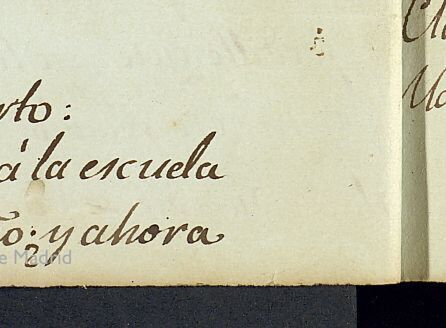 rto:
á la escuela
to: y ahora
e Madrid
Cl